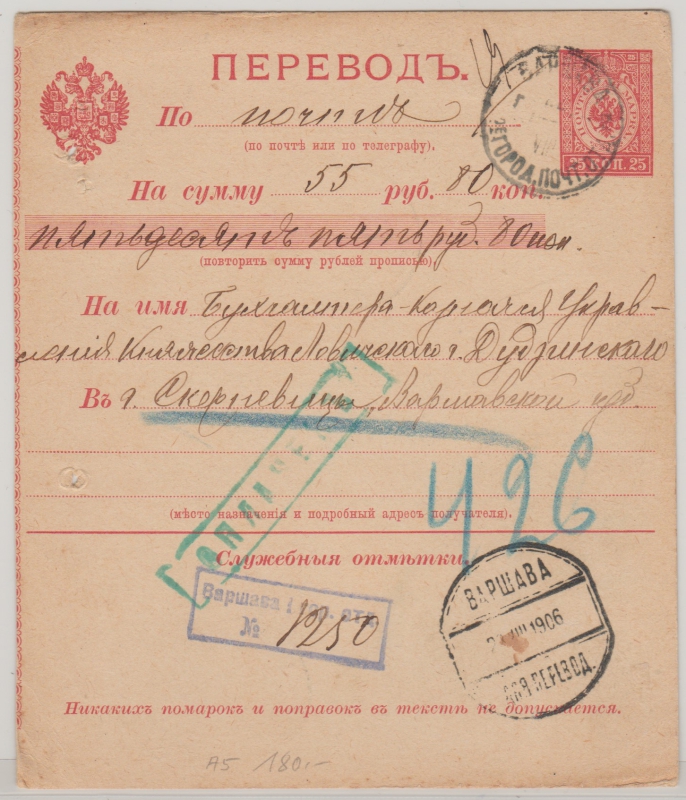 ПЕРЕВОДЪ.
По почтѣ
(по почтѣ или по телеграфу).
25 КОП. 25
На сумму 55 руб. 80 коп.
пятьдесятъ пять руб. 80 коп.
(повторить сумму рублей прописью).
На имя Бухгалтера Управ-
ленія Княжества Ловичскаго г.
Въ г. Скерневицы, Варшавской губ.
426
(мѣсто назначенія и подробный адресъ получателя).
Служебныя отмѣтки.
Варшава
№ 1250
ВАРШАВА
VIII 1906
ПЕРЕВОД.
Никакихъ помарокъ и поправокъ въ текстѣ не допускается.
A5 180.-